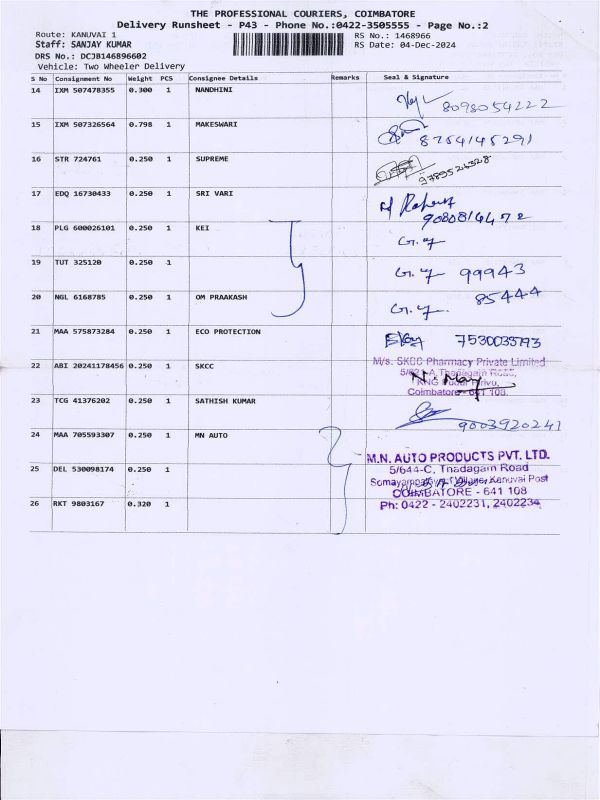 THE PROFESSIONAL COURIERS, COIMBATORE
Delivery Runsheet - P43 - Phone No.:0422-3505555 - Page No.:2
Route: KANUVAI 1
RS No.: 1468966
Staff: SANJAY KUMAR
RS Date: 04-Dec-2024
DRS No.: DCJB146896602
Vehicle: Two Wheeler Delivery
S No Consignment No Weight PCS Consignee Details Remarks Seal & Signature
14 IXM 507478355 0.300 1 NANDHINI 8098054222
15 IXM 507326564 0.798 1 MAKESWARI 8754145291
16 STR 724761 0.250 1 SUPREME 9789526328
17 EDQ 16730433 0.250 1 SRI VARI
9080816472
18 PLG 600026101 0.250 1 KEI
19 TUT 325120 0.250 1 99943
20 NGL 6168785 0.250 1 OM PRAAKASH 85444
21 MAA 575873284 0.250 1 ECO PROTECTION 7530035793
22 ABI 20241178456 0.250 1 SKCC
M/s. SKCC Pharmacy Private Limited
Thadagam Road,
Coimbatore - 641 108.
23 TCG 41376202 0.250 1 SATHISH KUMAR 9003920241
24 MAA 705593307 0.250 1 MN AUTO
M.N. AUTO PRODUCTS PVT. LTD.
25 DEL 530098174 0.250 1
5/644-C, Thadagam Road
Kanuvai Post
COIMBATORE - 641 108
26 RKT 9803167 0.320 1
Ph: 0422 - 2402231, 2402234